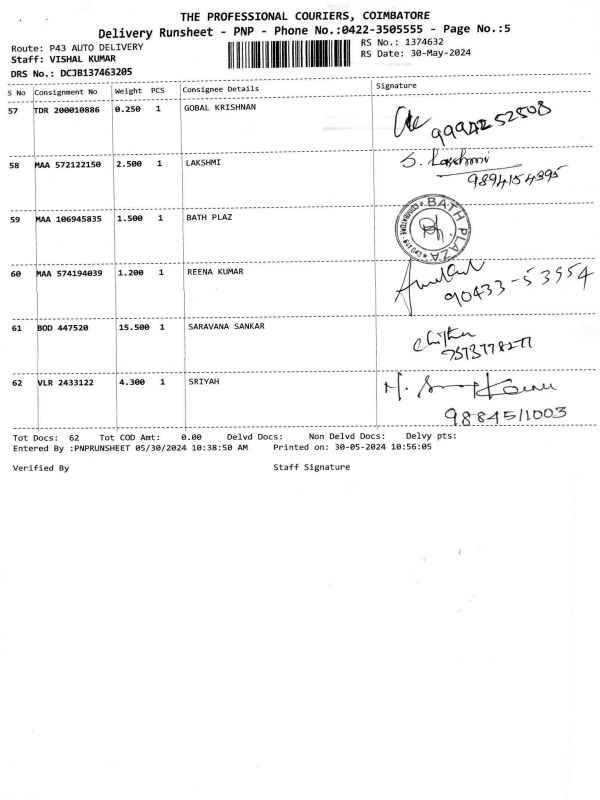 THE PROFESSIONAL COURIERS, COIMBATORE
Delivery Runsheet - PNP - Phone No.:0422-3505555 - Page No.:5
Route: P43 AUTO DELIVERY
RS No.: 1374632
Staff: VISHAL KUMAR
RS Date: 30-May-2024
DRS No.: DCJB137463205
S No Consignment No Weight PCS Consignee Details Signature
57 TDR 200010886 0.250 1 GOBAL KRISHNAN
58 MAA 572122150 2.500 1 LAKSHMI S. Lakshmi
9894154395
59 MAA 106945835 1.500 1 BATH PLAZ BATH PLAZA
60 MAA 574194039 1.200 1 REENA KUMAR
90433-53954
61 BOD 447520 15.500 1 SARAVANA SANKAR
62 VLR 2433122 4.300 1 SRIYAH
9884511003
Tot Docs: 62 Tot COD Amt: 0.00 Delvd Docs: Non Delvd Docs: Delvy pts:
Entered By :PNPRUNSHEET 05/30/2024 10:38:50 AM Printed on: 30-05-2024 10:56:05
Verified By Staff Signature